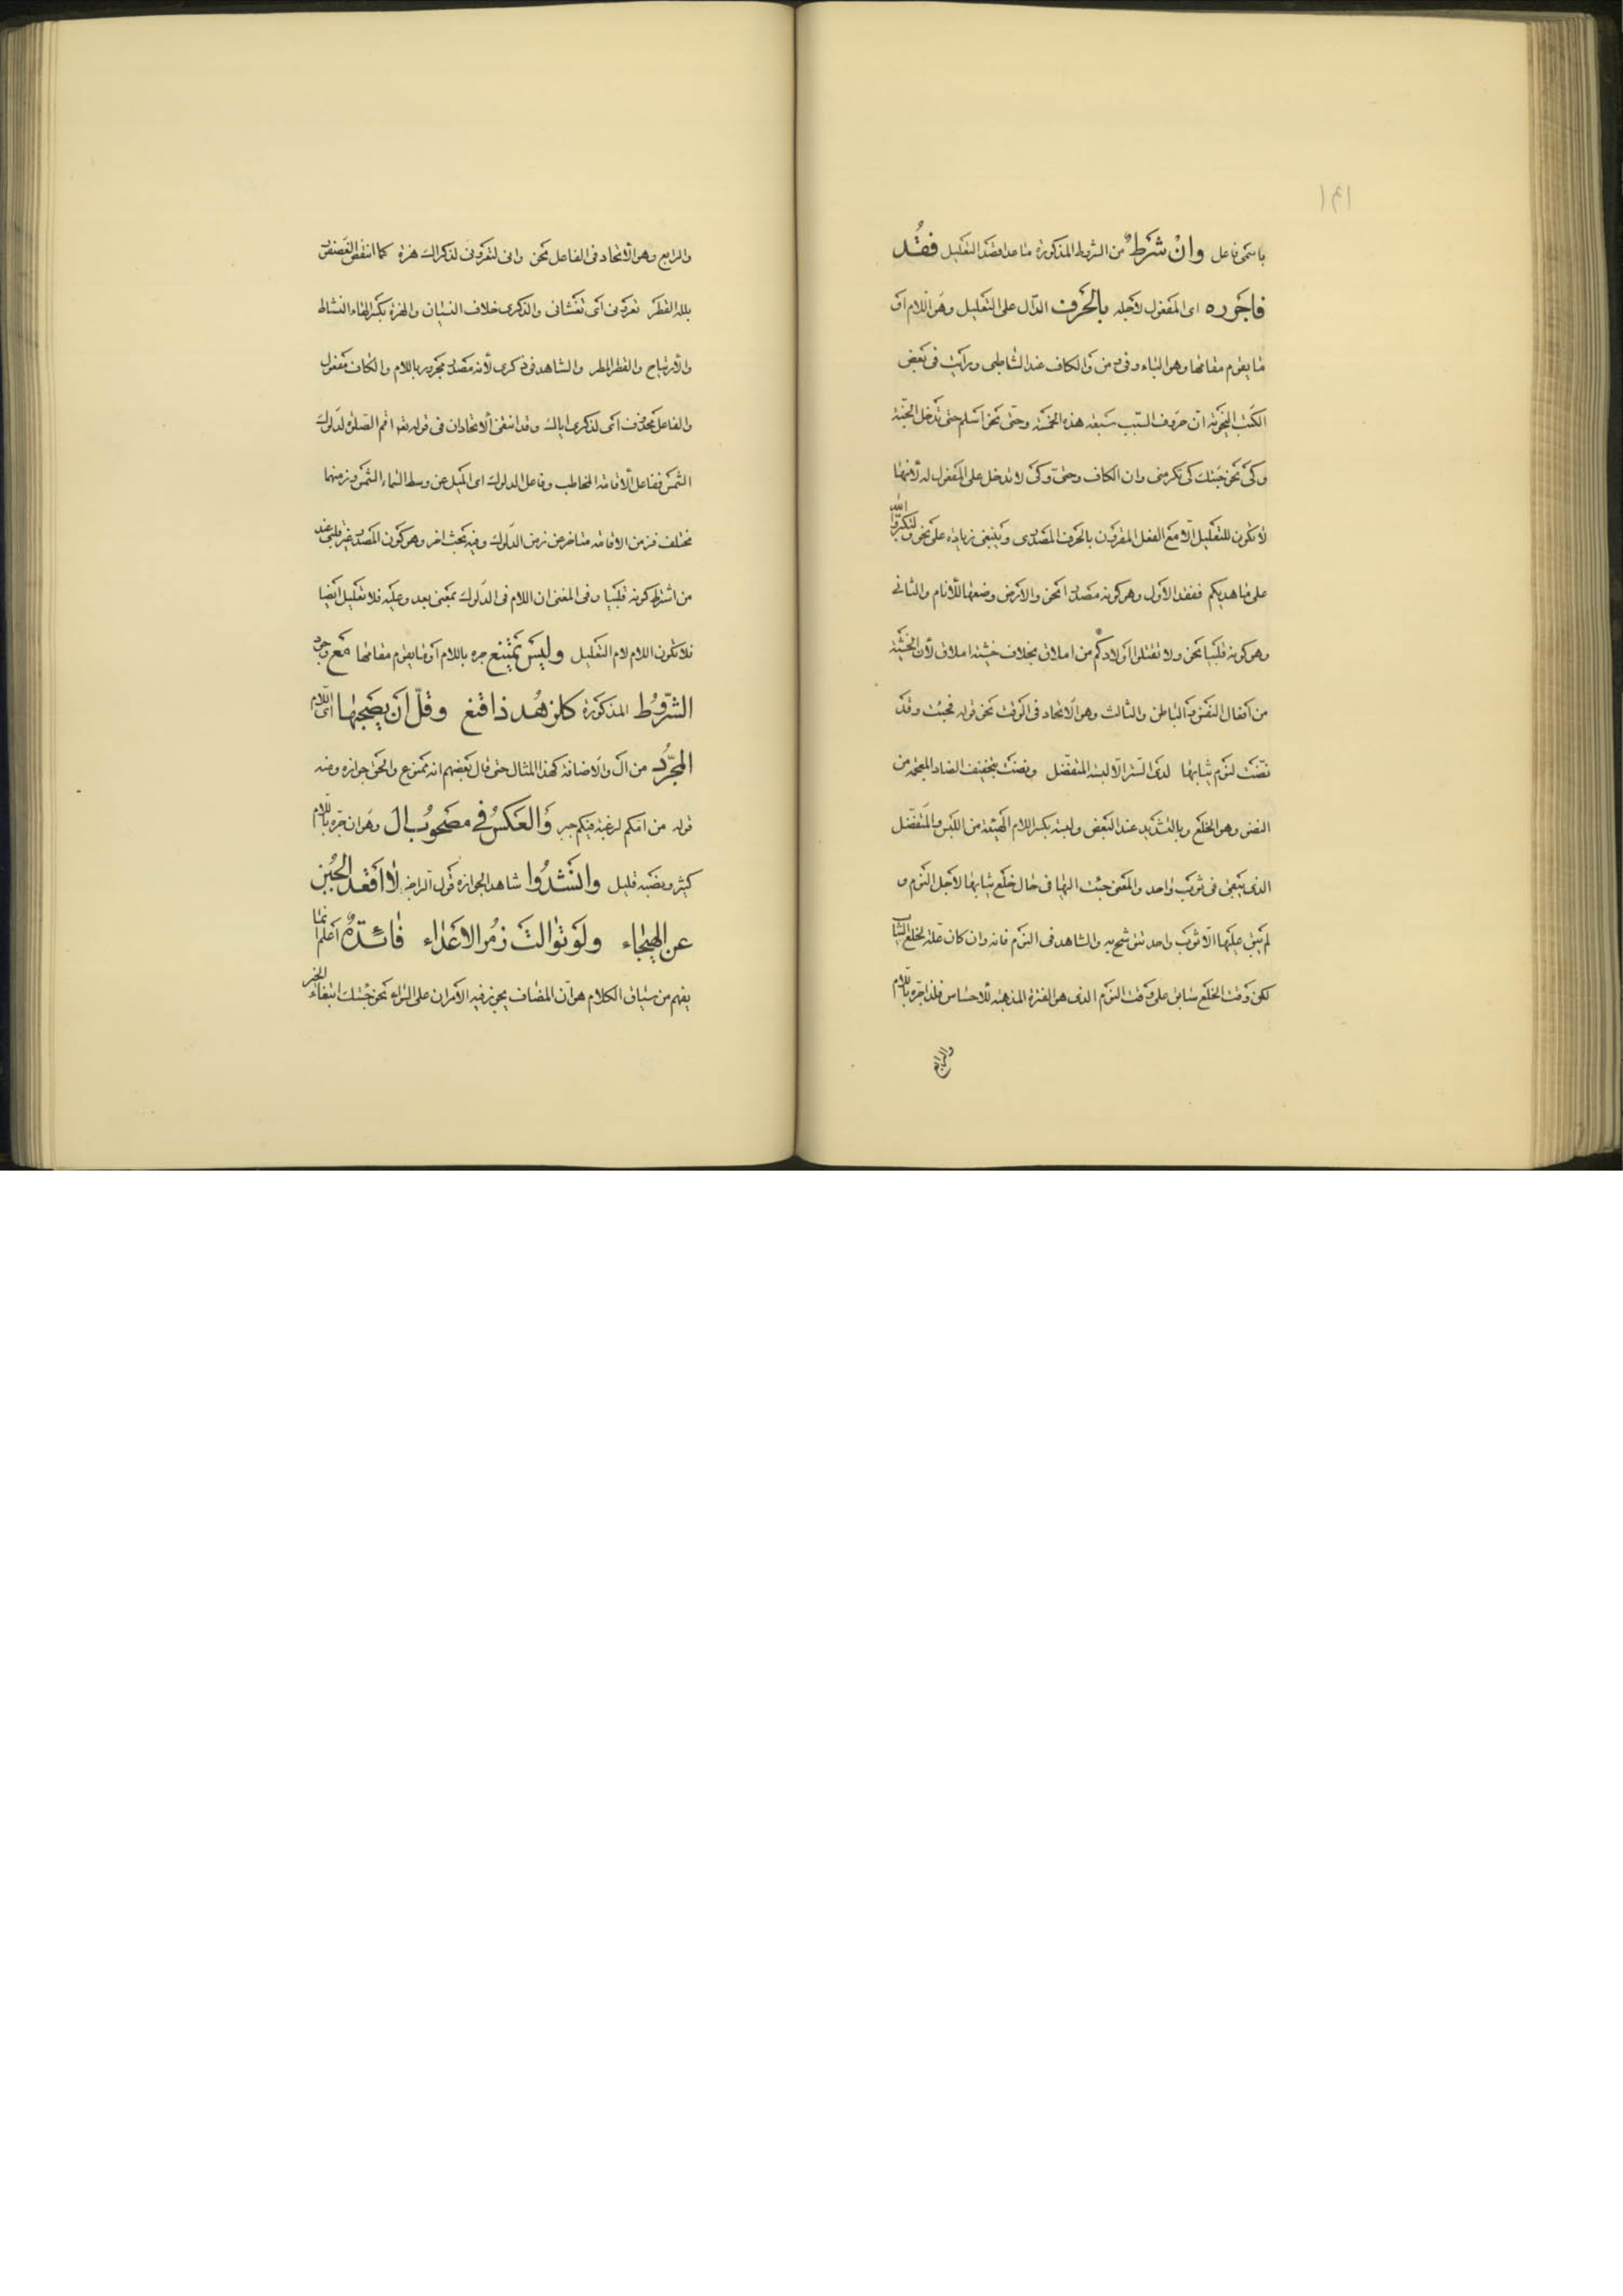 ١٣١
باسمى فاعل وَاِنْ شَرْطٌ من الشروط المذكورة ماعدا قصد التعليل فُقِدْ
فاجرره اى المفعول لاجله بالحَرْف الدّال على التعليل وهو اللام او
ما يقوم مقامها وهو الباء وفى ومن والكاف عند الشاطبى ورايت فى بعض
الكتب النحوية ان حروف السبب سبعة هذه الخمسة وحتى نحو اسلم حتى تدخل الجنة
وكى نحو جئتك كى تكرمنى وان الكاف وحتى وكى لا تدخل على المفعول له لأنها
لا تكون للتعليل الا مع الفعل المقرون بالحرف المصدرى وينبغى زيادة على نحو ولتكبروا الله
على ما هديكم ففقد الاول وهو كونه مصدرا نحو والارض وضعها للانام والثانى
وهو كونه قلبيا نحو ولا تقتلوا اولادكم من املاق بخلاف خشية املاق لأن الخشية
من افعال النفس الباطن والثالث وهو الاتحاد فى الوقت نحو قوله فجئت وقد
نضّت لنوم ثيابها لدى الستر الا لبسة المتفضل ونضت بتخفيف الضاد المعجمة من
النضو وهو الخلع وبالتشديد عند البعض ولبسة بكسر اللام الهيئة من اللبس والمتفضل
الذى يبقى فى ثوب واحد والمعنى جئت اليها فى حال خلع ثيابها لاجل النوم و
لم يبق عليها الا ثوب واحد تتوشح به والشاهد فى النوم فانه وان كان علة لخلع الثياب
لكن وقت الخلع سابق على وقت النوم الذى هو الفترة المذهبة للاحساس فلذا جره باللام
والرابع
والرابع وهو الاتحاد فى الفاعل نحو وانى لتعرونى لذكراك هزة كما انتفض العصفور
بلله القطر تعرونى اى تغشانى والذكرى خلاف النسيان والهزة بكسر الهاء النشاط
والارتياح والقطر المطر والشاهد فى ذكرى لأنه مصدر مجرور باللام والكاف مفعول
والفاعل محذوف اى لذكرى اياك وقد انتفى الاتحادان فى قوله تعه اقم الصلوة لدلوك
الشمس ففاعل الاقامة المخاطب وفاعل الدلوك اى الميل عن وسط السماء الشمس وزمنهما
مختلف فزمن الاقامة متاخر عن زمن الدلوك وفيه بحث اخر وهو كون المصدر غير قلبى عند
من اشترط كونه قلبيا وفى المغنى ان اللام فى الدلوك بمعنى بعد وعليه فلا تعليل ايضا
فلا تكون اللام لام التعليل وليس يمتنع جره باللام او ما يقوم مقامها مع وجود
الشّروط المذكورة كلزهد ذا قنع وقلّ ان يصحبها اى اللام
المجرّد من ال والاضافة كهذا المثال حتى قال بعضهم انه ممنوع والحق جوازه ومنه
قوله من امّكم لرغبة فيكم جبر والعكس فى مصحوب ال وهو ان جره باللام
كثير ونصبه قليل وانشدوا شاهدا لجوازه قول الراجز لا اقعد الجُبْن
عن الهيجاء ولو توالت زُمَر الاعداء فائدةٌ اعلم انما
يفهم من سياق الكلام هو ان المضاف يجوز فيه الامران على السواء نحو جئتك ابتغاء الخير